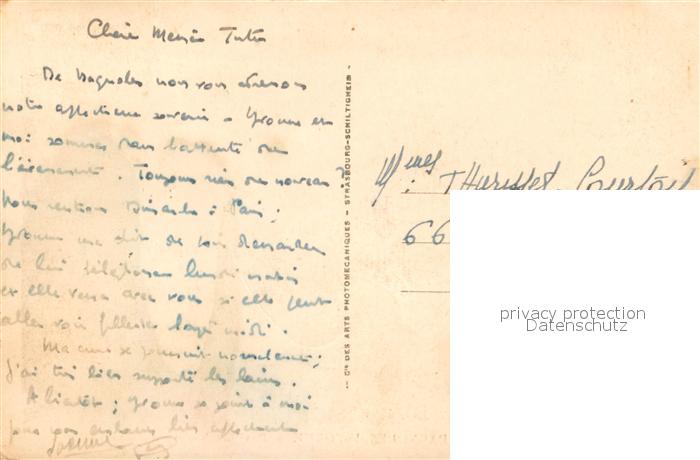 De Bagnoles nous vous adressons
notre affectueux souvenir. Yvonne et
moi sommes dans l'attente de
l'évènement. Toujours rien de nouveau ?
Nous rentrons Dimanche à Paris ;
Yvonne me dit de vous demander
de lui téléphoner lundi matin
et elle verra avec vous si elle peut
aller voir après midi.
Ma cure se poursuit normalement ;
j'ai très bien supporté les bains.
A bientôt ; Yvonne se joint à moi
pour vous embrasser bien affectueusement
Cie DES ARTS PHOTOMECANIQUES - STRASBOURG-SCHILTIGHEIM -
Mmes
66
privacy protection
Datenschutz